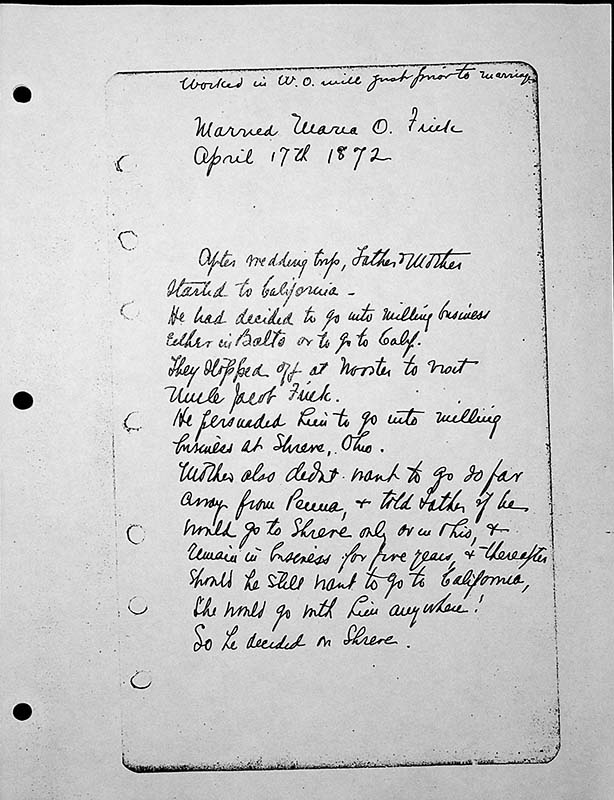 Worked in W. O. mill just prior to marriage
Married Maria O. Frick
April 17th 1872
After wedding trip, Father & Mother
started to California -
He had decided to go into milling business
Either in Balto or to go to Calif.
They stopped off at Wooster to visit
Uncle Jacob Frick.
He persuaded him to go into milling
business at Shreve, Ohio.
Mother also didnt want to go so far
away from Penna, & told Father if he
would go to Shreve only or in Ohio, &
remain in business for five years, & thereafter
should he still want to go to California,
She would go with him anywhere!
So he decided on Shreve.